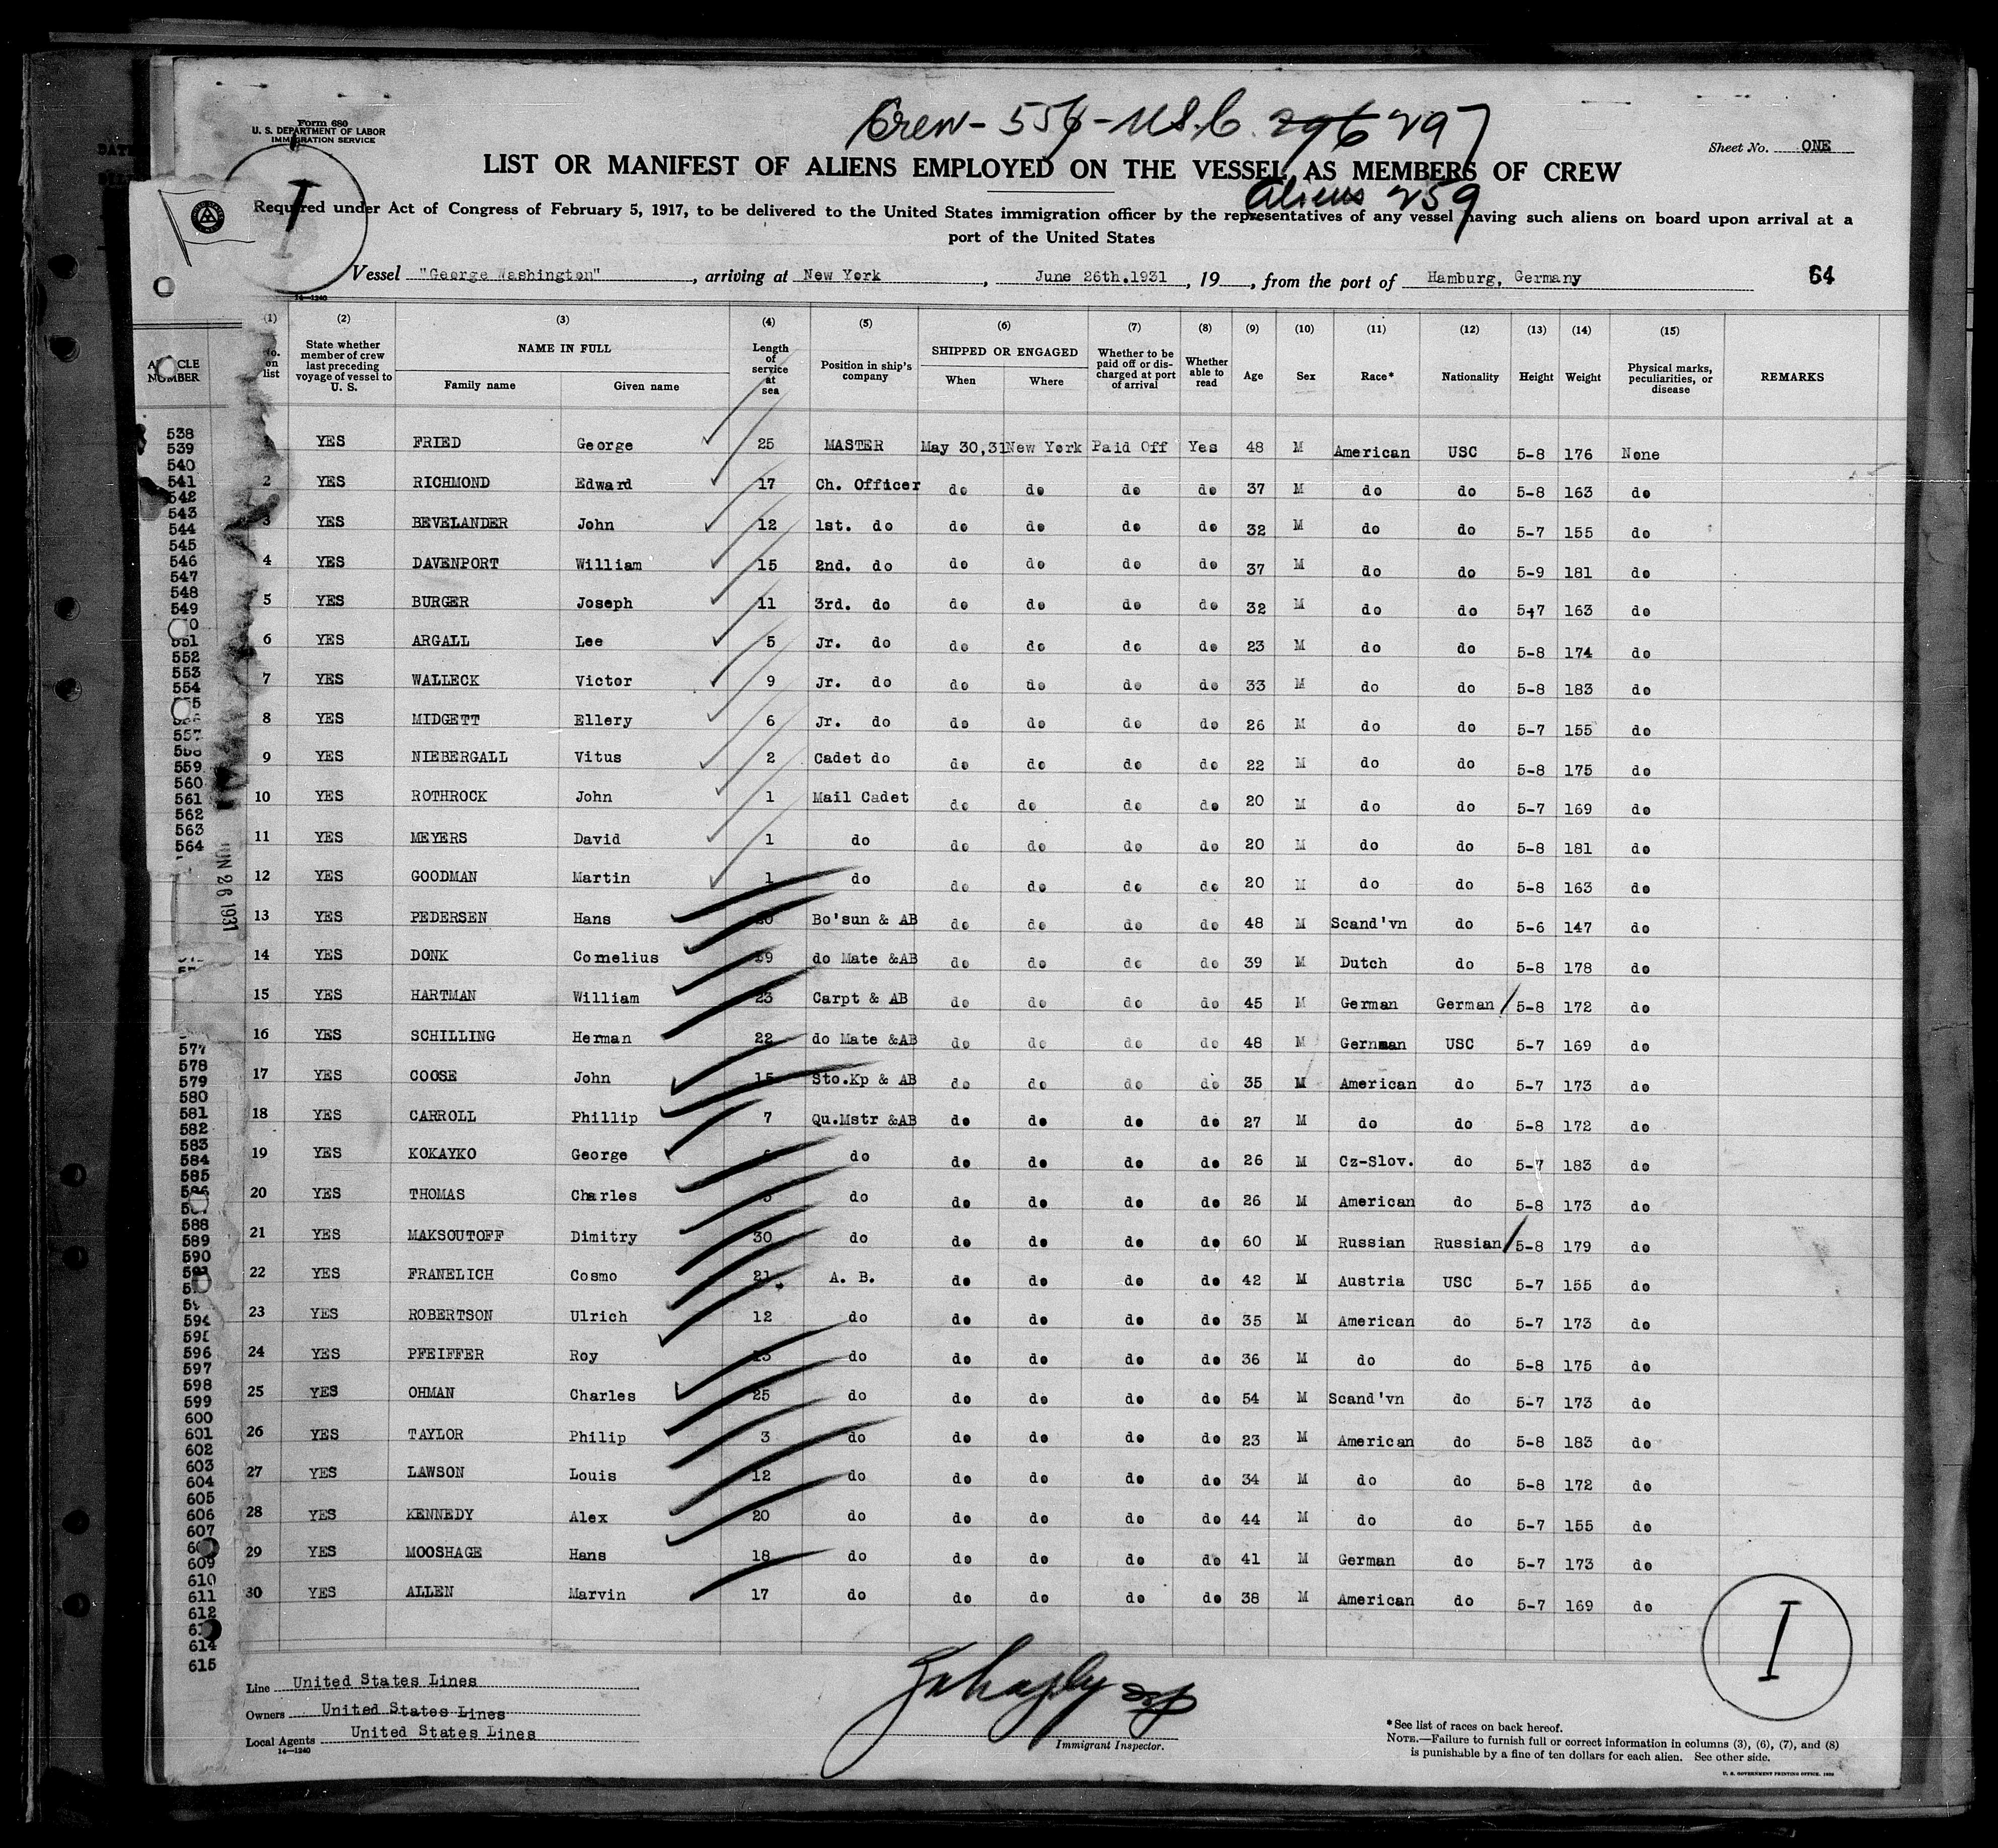 Form 680
U. S. DEPARTMENT OF LABOR
IMMIGRATION SERVICE
Crew - 556 - U.S.C. 296 297
Sheet No. ONE
LIST OR MANIFEST OF ALIENS EMPLOYED ON THE VESSEL AS MEMBERS OF CREW
Aliens 259
I
Required under Act of Congress of February 5, 1917, to be delivered to the United States immigration officer by the representatives of any vessel having such aliens on board upon arrival at a
port of the United States
Vessel "George Washington", arriving at New York, June 26th.1931, 19, from the port of Hamburg, Germany 64
14—1240
(1) (2) (3) (4) (5) (6) (7) (8) (9) (10) (11) (12) (13) (14) (15)
No. on list State whether member of crew last preceding voyage of vessel to U. S. NAME IN FULL Family name Given name Length of service at sea Position in ship's company SHIPPED OR ENGAGED When Where Whether to be paid off or discharged at port of arrival Whether able to read Age Sex Race* Nationality Height Weight Physical marks, peculiarities, or disease REMARKS
YES FRIED George 25 MASTER May 30,31 New York Paid Off Yes 48 M American USC 5-8 176 None
2 YES RICHMOND Edward 17 Ch. Officer do do do do 37 M do do 5-8 163 do
3 YES BEVELANDER John 12 1st. do do do do do 32 M do do 5-7 155 do
4 YES DAVENPORT William 15 2nd. do do do do do 37 M do do 5-9 181 do
5 YES BURGER Joseph 11 3rd. do do do do do 32 M do do 5-7 163 do
6 YES ARGALL Lee 5 Jr. do do do do do 23 M do do 5-8 174 do
7 YES WALLECK Victor 9 Jr. do do do do do 33 M do do 5-8 183 do
8 YES MIDGETT Ellery 6 Jr. do do do do do 26 M do do 5-7 155 do
9 YES NIEBERGALL Vitus 2 Cadet do do do do do 22 M do do 5-8 175 do
10 YES ROTHROCK John 1 Mail Cadet do do do do 20 M do do 5-7 169 do
11 YES MEYERS David 1 do do do do do 20 M do do 5-8 181 do
12 YES GOODMAN Martin 1 do do do do do 20 M do do 5-8 163 do
13 YES PEDERSEN Hans Bo'sun & AB do do do do 48 M Scand'vn do 5-6 147 do
14 YES DONK Cornelius do Mate &AB do do do do 39 M Dutch do 5-8 178 do
15 YES HARTMAN William 23 Carpt & AB do do do do 45 M German German 5-8 172 do
16 YES SCHILLING Herman 22 do Mate &AB do do do do 48 M Gernman USC 5-7 169 do
17 YES COOSE John 15 Sto.Kp & AB do do do do 35 M American do 5-7 173 do
18 YES CARROLL Phillip 7 Qu.Mstr &AB do do do do 27 M do do 5-8 172 do
19 YES KOKAYKO George do do do do do 26 M Cz-Slov. do 5-7 183 do
20 YES THOMAS Charles do do do do do 26 M American do 5-8 173 do
21 YES MAKSOUTOFF Dimitry 30 do do do do do 60 M Russian Russian 5-8 179 do
22 YES FRANELICH Cosmo 21 A. B. do do do do 42 M Austria USC 5-7 155 do
23 YES ROBERTSON Ulrich 12 do do do do do 35 M American do 5-7 173 do
24 YES PFEIFFER Roy do do do do do 36 M do do 5-8 175 do
25 YES OHMAN Charles 25 do do do do do 54 M Scand'vn do 5-7 173 do
26 YES TAYLOR Philip 3 do do do do do 23 M American do 5-8 183 do
27 YES LAWSON Louis 12 do do do do do 34 M do do 5-8 172 do
28 YES KENNEDY Alex 20 do do do do do 44 M do do 5-7 155 do
29 YES MOOSHAGE Hans 18 do do do do do 41 M German do 5-7 173 do
30 YES ALLEN Marvin 17 do do do do do 38 M American do 5-7 169 do
I
Line United States Lines
Owners United States Lines
Local Agents United States Lines
14—1240
Immigrant Inspector.
*See list of races on back hereof.
NOTE.—Failure to furnish full or correct information in columns (3), (6), (7), and (8)
is punishable by a fine of ten dollars for each alien. See other side.
U. S. GOVERNMENT PRINTING OFFICE. 1930
NUMBER
538
539
540
541
542
543
544
545
546
547
548
549
552
553
554
559
560
561
562
563
564
JUN 26 1931
577
578
579
580
581
582
583
584
585
586
588
589
590
594
596
597
598
599
600
601
602
603
604
605
606
607
609
610
611
612
614
615